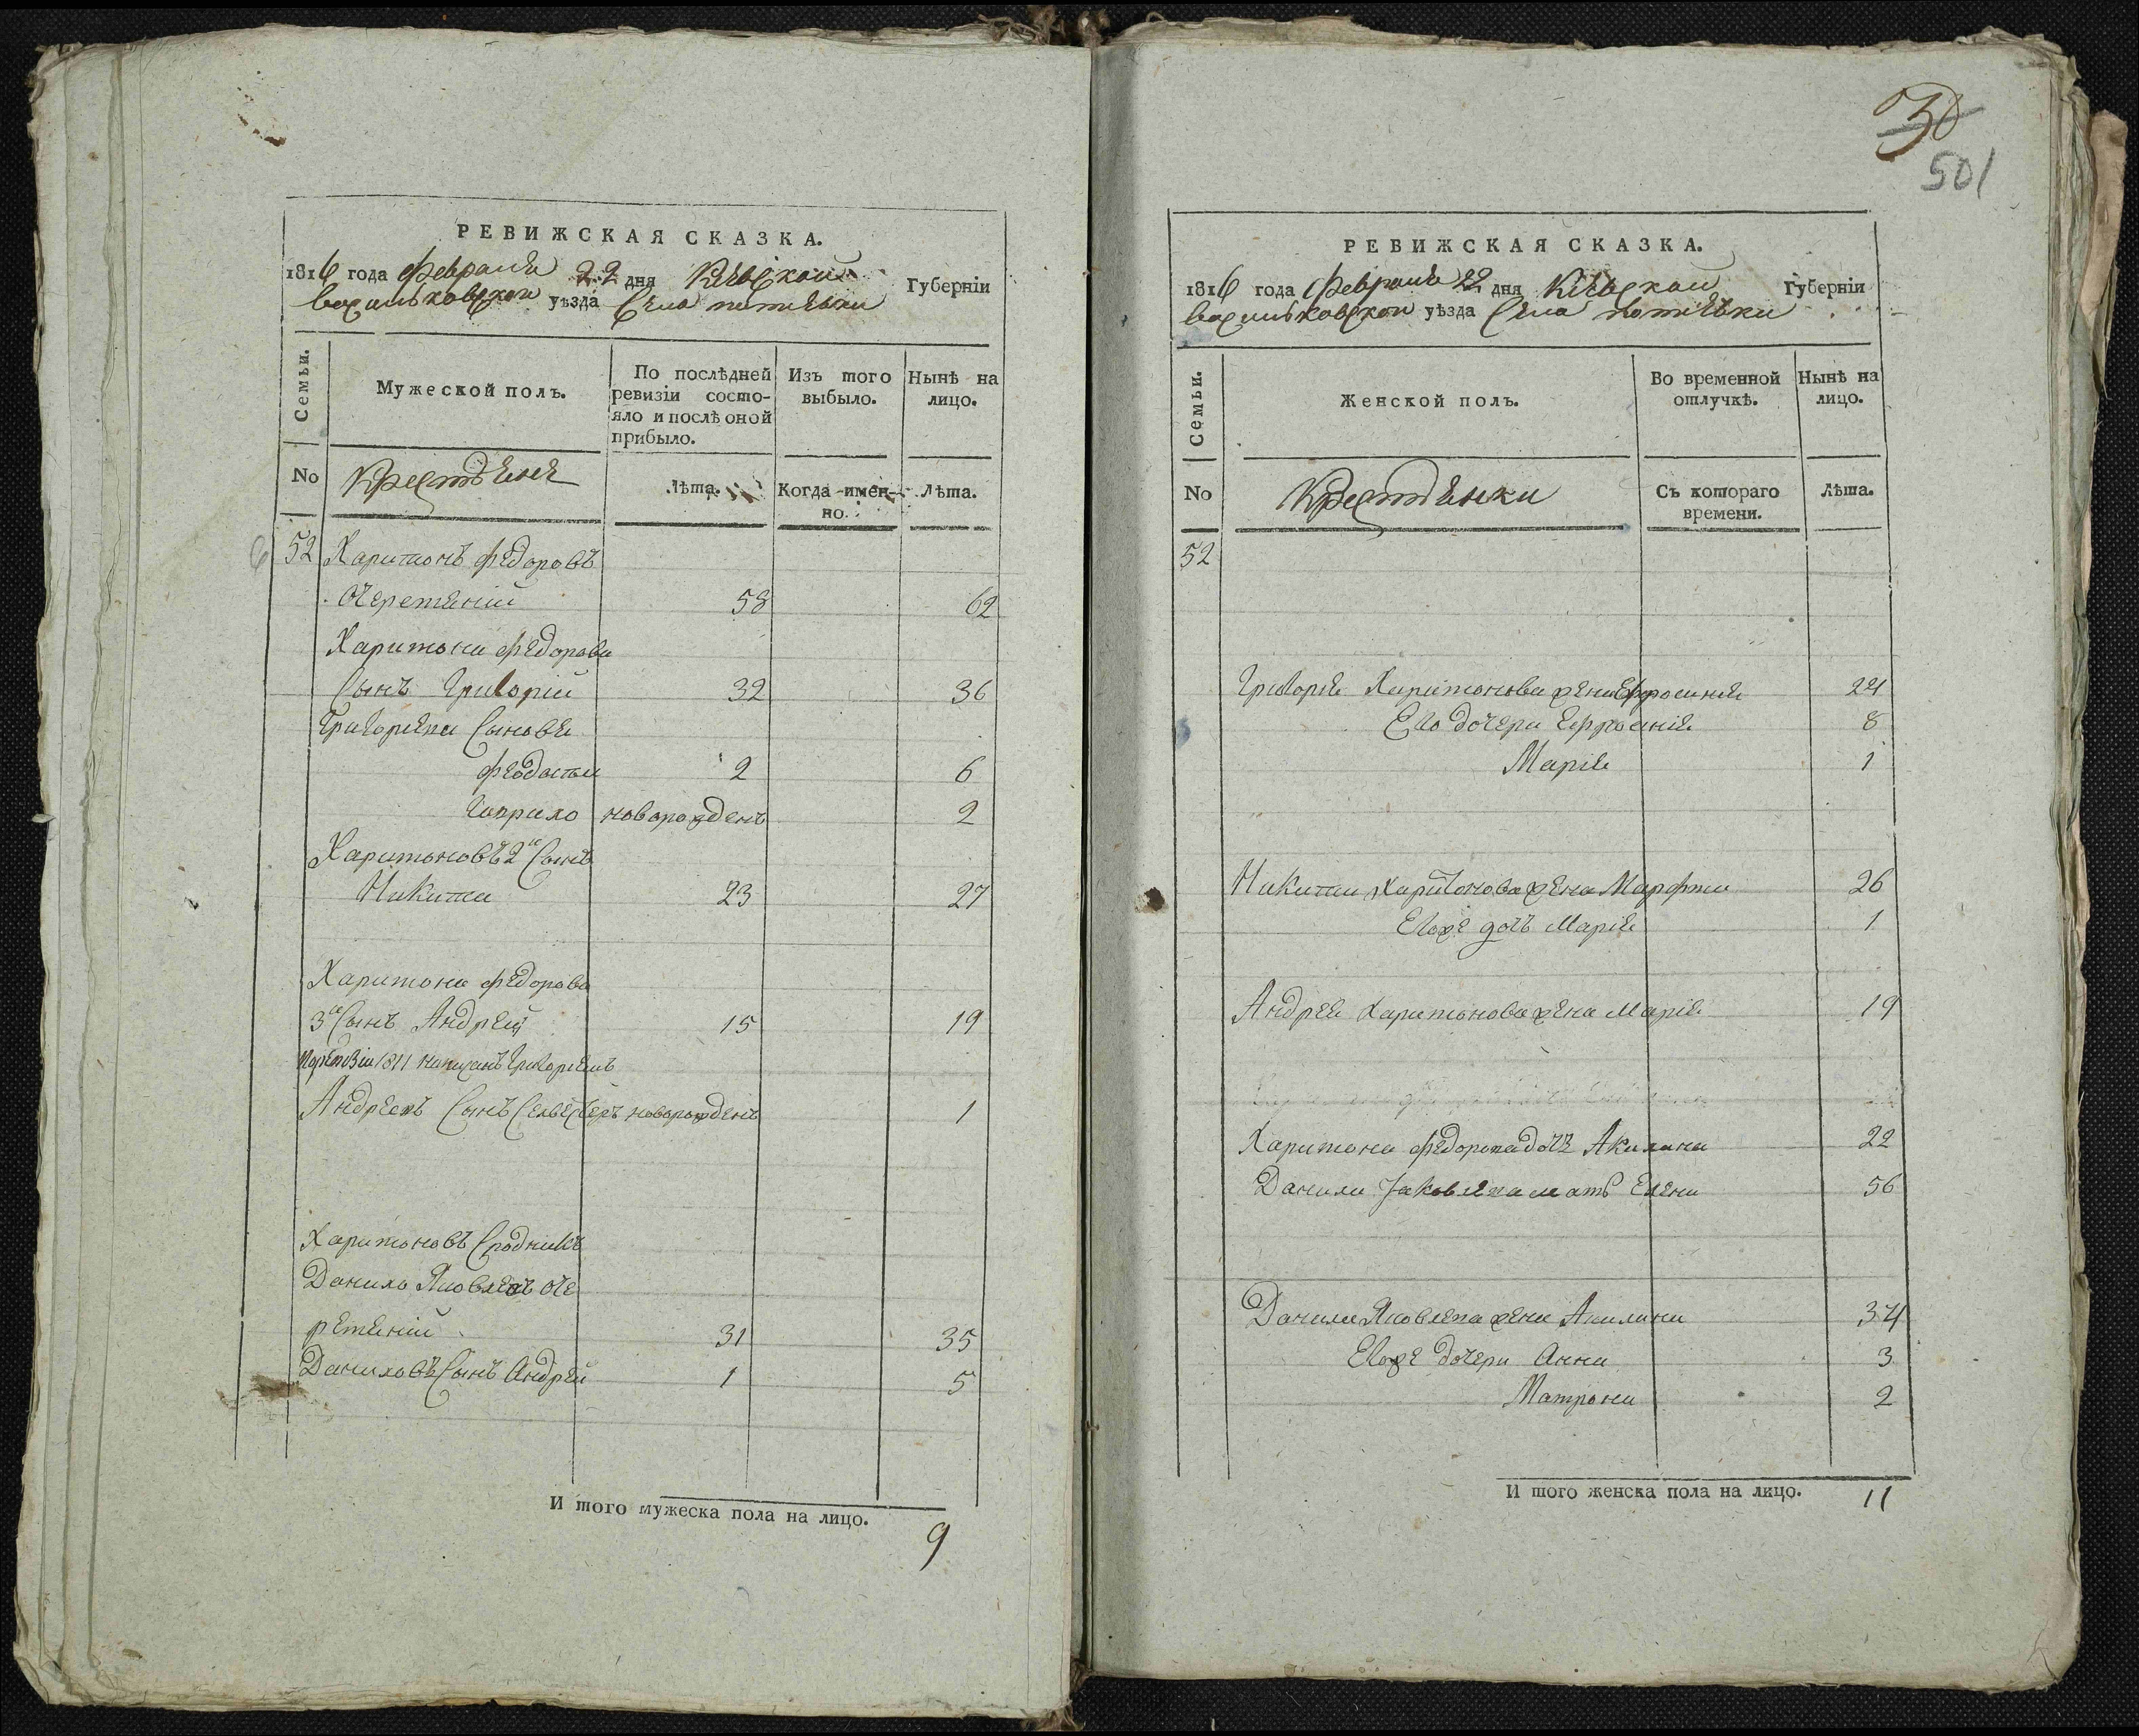 РЕВИЖСКАЯ СКАЗКА.
1816 года февраля 22 дня Кіевской Губерніи
васильковской уѣзда Села
Семьи.
Мужеской полъ.
По послѣдней ревизіи состо-
яло и послѣ оной
прибыло.
Изъ того
выбыло.
Нынѣ на
лицо.
No
Крестяне
Лѣта.
Когда имен-
но.
Лѣта.
52 Харитонъ Федоровъ
Очеретяній 58 62
Харитона Федорова
Сынъ Григорій 32 36
Григорієва Сыновя
Феодосій 2 6
Гаврило новорожденъ 2
Харитоновъ 2й Сынъ
Никита 23 27
Харитона Федорова
3й Сынъ Андрей 15 19
1811 написанъ Григоріемъ
Андреевъ Сынъ Селвестеръ новорожденъ 1
Харитоновъ Сродникъ
Данило Яковлевъ Оче
ретяній 31 35
Даниловъ Сынъ Андрей 1 5
И того мужеска пола на лицо.
9
30
501
РЕВИЖСКАЯ СКАЗКА.
1816 года февраля 22 дня Кіевской Губерніи
васильковской уѣзда Села
Семьи.
Женской полъ.
Во временной
отлучкѣ.
Нынѣ на
лицо.
No
Крестянки
Съ котораго
времени.
Лѣта.
52
Григорія Харитонова жена Ефросинія 24
Его дочери Ефросинія 8
Марія 1
Никити Харитонова жена Марфа 26
Егоже дочъ Марія 1
Андрея Харитонова жена Марія 19
Харитона Федорова дочъ Акилина 22
Данила Яковлева мать Елена 56
Данила Яковлева жена Акилина 34
Егоже дочери Анна 3
Матрона 2
И того женска пола на лицо. 11